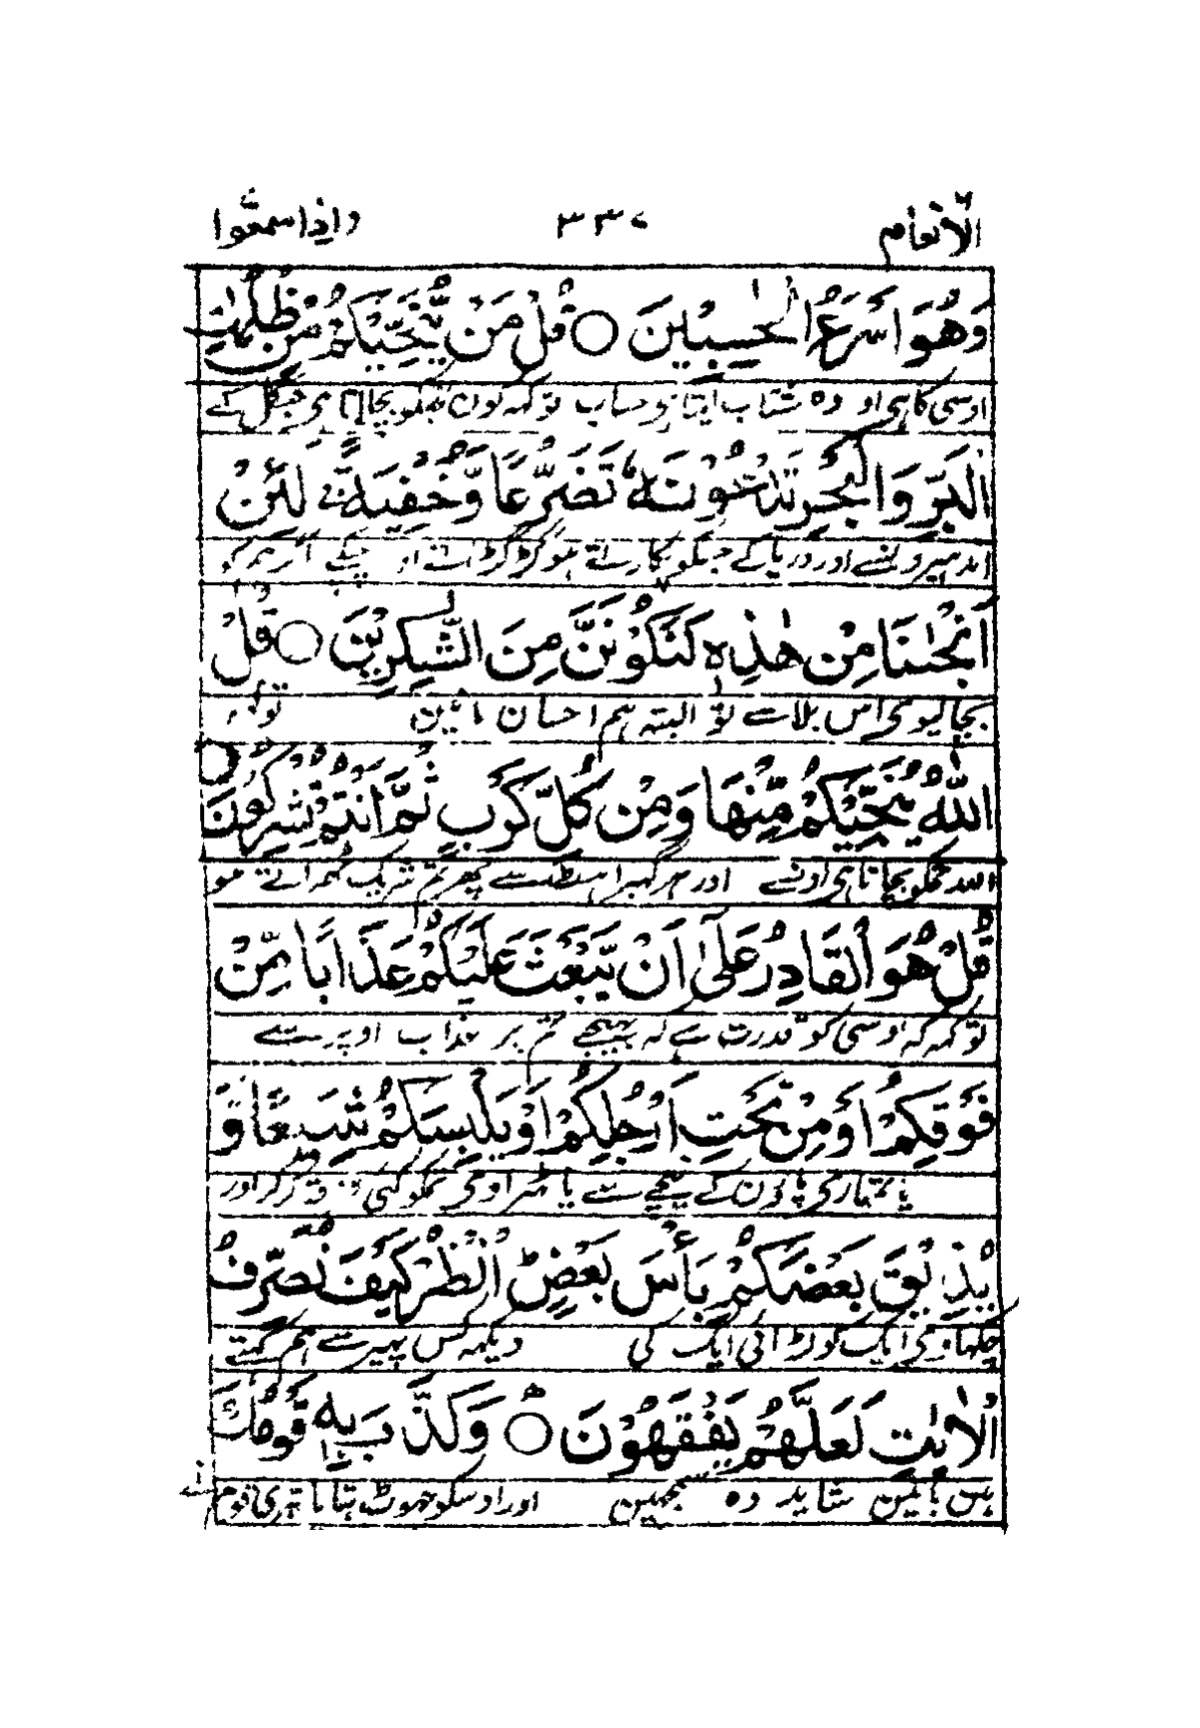 الانعام ٦ ٣٣٧ واذا سمعوا ٧
وَهُوَ اَسْرَعُ الْحٰسِبِيْنَ ○ قُلْ مَنْ يُّنَجِّيْكُمْ مِّنْ ظُلُمٰتِ
اوسی کا ہی اور وہ شتاب لیتا ہی حساب تو کہہ کون تمکو بچا لاتا ہی جنگل کے
الْبَرِّ وَالْبَحْرِ تَدْعُوْنَهٗ تَضَرُّعًا وَّخُفْيَةً ۚ لَئِنْ
اندہیرونسے اور دریا کے جسکو پکارتے ہو گڑگڑاتے اور چپکے اگر ہمکو
اَنْجٰىنَا مِنْ هٰذِهٖ لَنَكُوْنَنَّ مِنَ الشّٰكِرِيْنَ ○ قُلِ
بچا لیوی اس بلا سے تو البتہ ہم احسان مانین تو کہہ
اللّٰهُ يُنَجِّيْكُمْ مِّنْهَا وَمِنْ كُلِّ كَرْبٍ ثُمَّ اَنْتُمْ تُشْرِكُوْنَ ○
اللہ تمکو بچاتا ہی اونسے اور ہر گہبراہٹ سے پہر تم شریک ٹہراتے ہو
قُلْ هُوَ الْقَادِرُ عَلٰٓى اَنْ يَّبْعَثَ عَلَيْكُمْ عَذَابًا مِّنْ
تو کہہ کہ اوسی کو قدرت ہے کہ بہیجے تم پر عذاب اوپر سے
فَوْقِكُمْ اَوْ مِنْ تَحْتِ اَرْجُلِكُمْ اَوْ يَلْبِسَكُمْ شِيَعًا وَّ
یا تمہاری پاؤن کے نیچے سے یا ٹہراوی تمکو کئی فرقے کر اور
يُذِيْقَ بَعْضَكُمْ بَاْسَ بَعْضٍ ؕ اُنْظُرْ كَيْفَ نُصَرِّفُ
چکہاوی ایک کو لڑائی ایک کی دیکہہ کس پہیر سے ہم کہتے
الْاٰيٰتِ لَعَلَّهُمْ يَفْقَهُوْنَ ○ وَكَذَّبَ بِهٖ قَوْمُكَ
ہین باتین شاید وہ سمجہین اور اوسکو جہوٹ بتایا تیری قوم نے